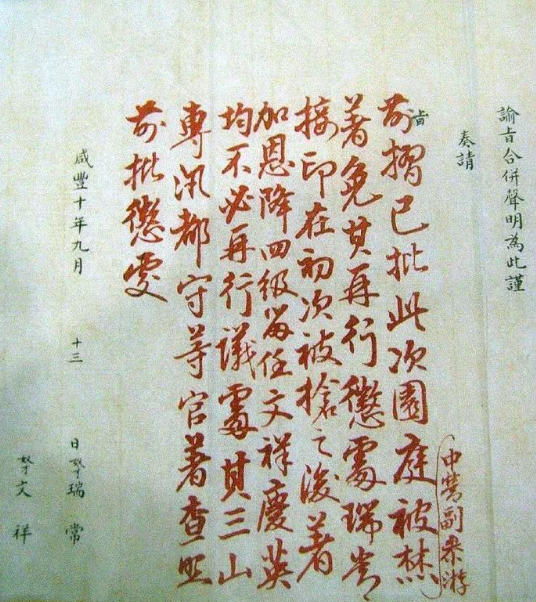 諭旨合併聲明為此謹
奏請
旨
前摺已批此次園庭被焚
中營副參游
著免其再行懲處瑞常
接印在初次被搶之後著
加恩降四級留任文祥慶英
均不必再行議處其三山
專汛都守等官著查照
前批懲處
咸豐十年九月 十三 日奴才瑞常
奴才文祥